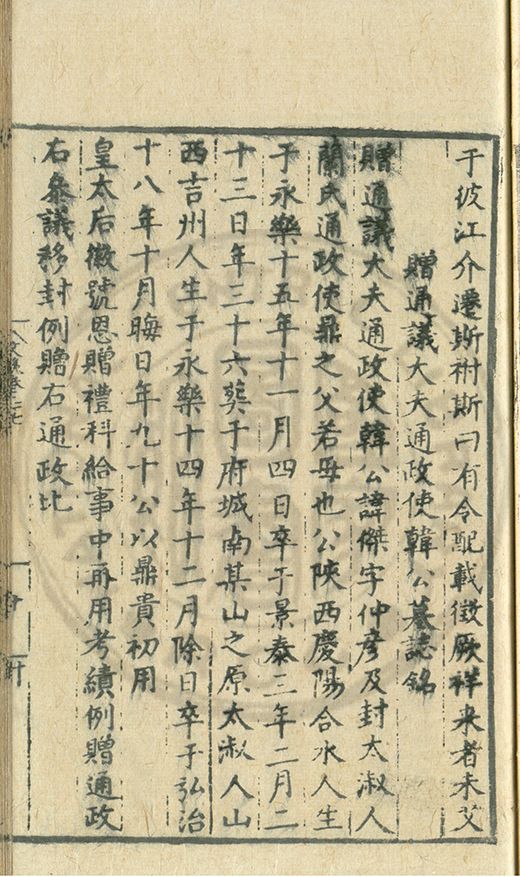 于彼江介遷斯祔斯曰有令配載徵厥祥來者未艾
贈通議大夫通政使韓公墓誌銘
贈通議大夫通政使韓公諱傑字仲彥及封太淑人
蘭氏通政使鼎之父若母也公陝西慶陽合水人生
于永樂十五年十一月四日卒于景泰三年二月二
十三日年三十六葬于府城南某山之原太淑人山
西吉州人生于永樂十四年十二月除日卒于弘治
十八年十月晦日年九十公以鼎貴初用
皇太后徽號恩贈禮科給事中再用考績例贈通政
右叅議移封例贈右通政比